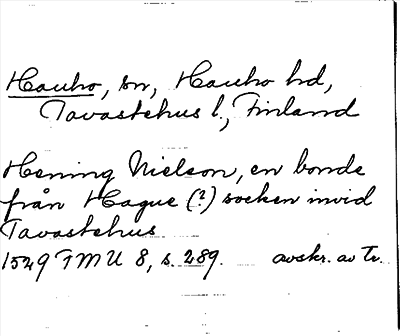 Hauho, sn, Hauho hd,
Tavastehus l., Finland
Hening Nielson, en bonde
från Hague (?) socken invid
Tavastehus
1529 FMU 8, s. 289. avskr. av Tr.